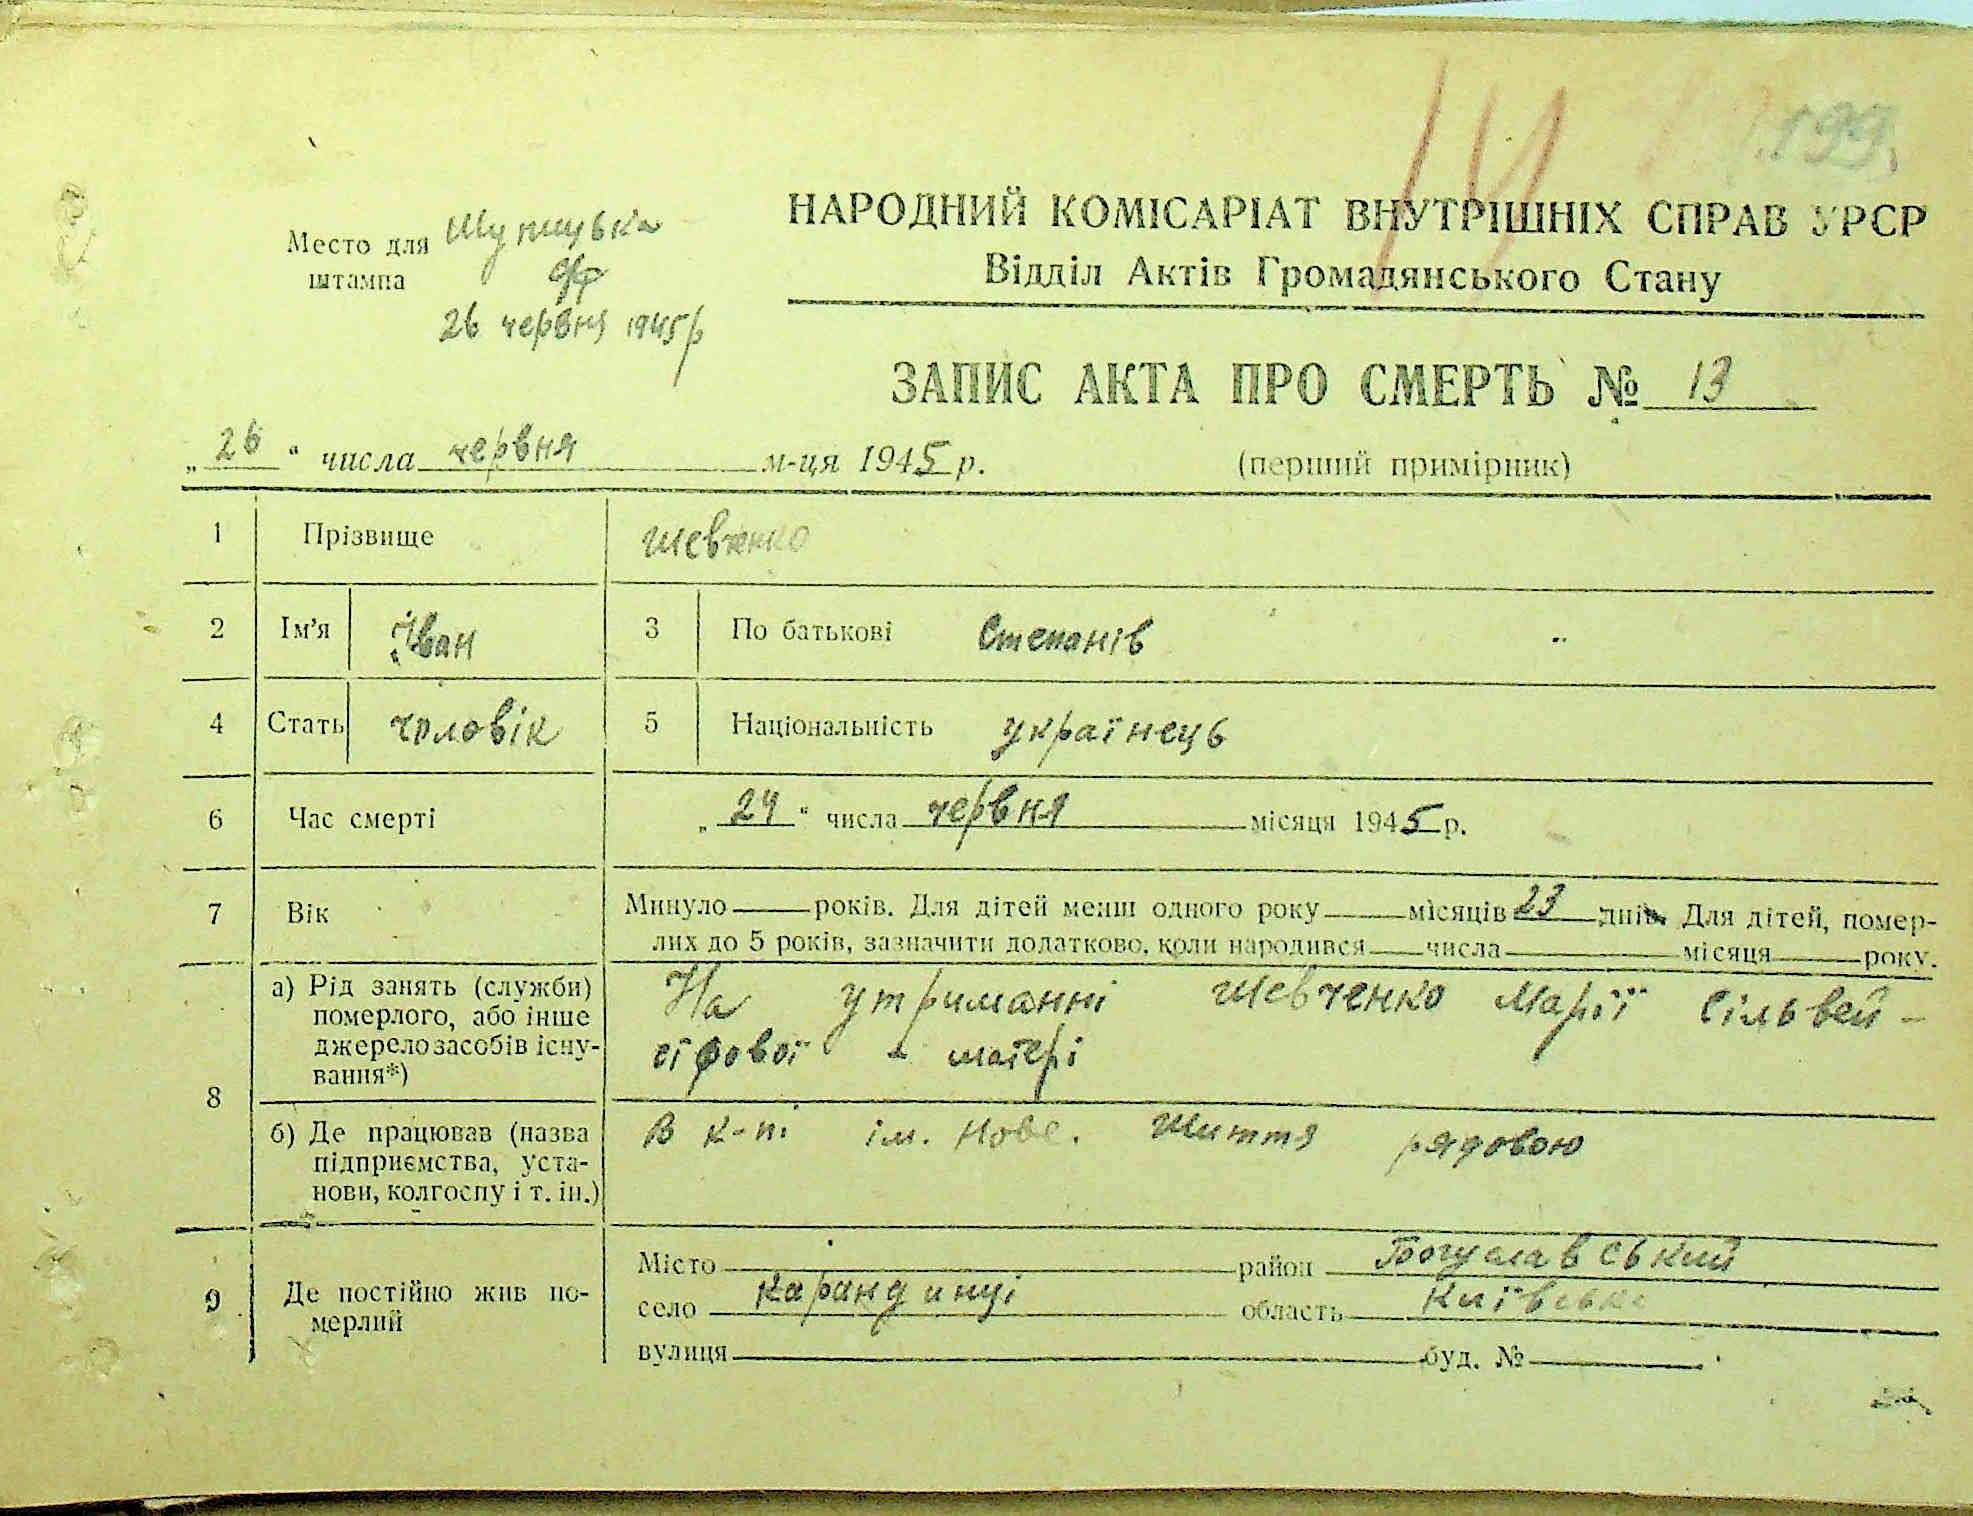 199.
14
Место для
штампа
26 червня 1945р
НАРОДНИЙ КОМІСАРІАТ ВНУТРІШНІХ СПРАВ УРСР
Відділ Актів Громадянського Стану
ЗАПИС АКТА ПРО СМЕРТЬ № 13
„26“ числа червня м-ця 1945 р.
(перший примірник)
1 Прізвище Шевченко
2 Ім’я Іван 3 По батькові Степанів
4 Стать чоловік 5 Національність українець
6 Час смерті „24“ числа червня місяця 1945 р.
7 Вік Минуло — років. Для дітей менш одного року — місяців 23 днів. Для дітей, помер-
лих до 5 років, зазначити додатково, коли народився — числа — місяця — року.
8
а) Рід занять (служби)
померлого, або інше
джерело засобів існу-
вання*)
На утриманні Шевченко Марії Сільвей-
стрової - матері
б) Де працював (назва
підприємства, уста-
нови, колгоспу і т. ін.)
В к-пі ім. Нове. Життя рядовою
9 Де постійно жив по-
мерлий
Місто — район Богуславський
село Карандинці область Київська
вулиця — буд. № —